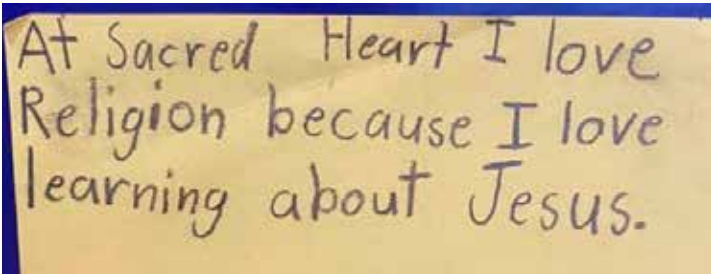 At Sacred Heart I love
Religion because I love
learning about Jesus.